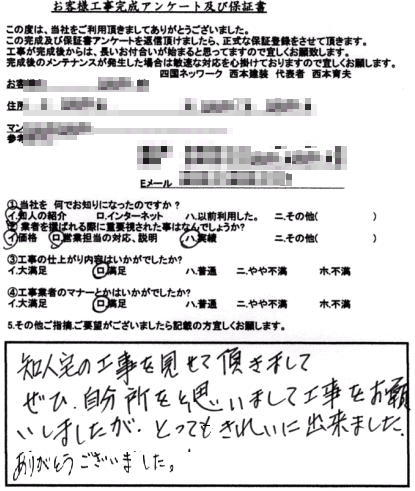 お客様工事完成アンケート及び保証書
この度は、当社をご利用頂きましてありがとうございました。
この完成及び保証書アンケートを返信頂けましたら、正式な保証登録をさせて頂きます。
工事が完成後からは、長いお付合いが始まると思ってますので宜しくお願致します。
完成後のメンテナンスが発生した場合は敏速な対応を心掛けておりますので宜しくお願します。
四国ネッワーク 西本建装 代表者 西本育夫
お客
住所
マン
参考
Eメール
①当社を 何でお知りになったのですか?
イ.知人の紹介 ロ.インターネット ハ.以前利用した。 ニ.その他( )
② 業者を選ばれる際に重要視された事はなんでしょうか?
イ価格 ロ.営業担当の対応、説明 ハ.実績 ニ.その他( )
③工事の仕上がり内容はいかがでしたか?
イ.大満足 ロ.満足 ハ.普通 ニ.やや不満 ホ.不満
④工事業者のマナーとかはいかがでしたか?
イ.大満足 ロ.満足 ハ.普通 ニ.やや不満 ホ.不満
5.その他ご指摘、ご要望がございましたら記載の方宜しくお願します。
知人宅の工事を見せて頂きまして
ぜひ、自分所をと思いまして工事をお願
いしましたが、とってもきれいに出来ました。
ありがとうございました。